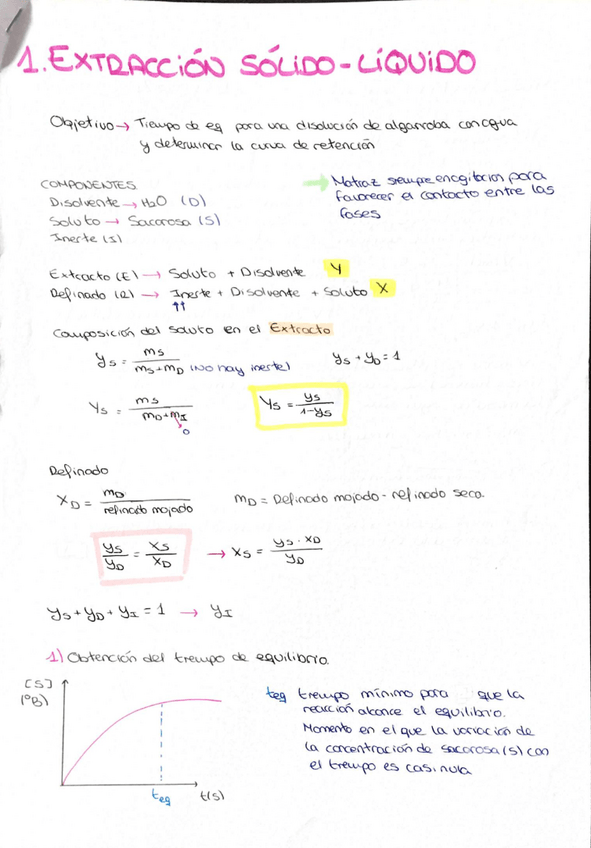 1. EXTRACCIÓN SÓLIDO-LÍQUIDO
Objetivo → Tiempo de eq para una disolución de algarroba con agua
y determinar la curva de retención
COMPONENTES
Disolvente → H₂O (D)
Soluto → Sacarosa (S)
Inerte (I)
→ Matraz siempre en agitación para
favorecer el contacto entre las
fases
Extracto (E) → Soluto + Disolvente Y
Refinado (R) → Inerte + Disolvente + Soluto X
↑↑
Composición del soluto en el Extracto
y_S = m_S / (m_S + m_D) (No hay inerte) y_S + y_D = 1
Y_S = m_S / (m_D + m_I) → 0 Y_S = y_S / (1 - y_S)
Refinado
X_D = m_D / refinado mojado m_D = Refinado mojado - refinado seco.
y_S / y_D = X_S / X_D → X_S = y_S · X_D / y_D
y_S + y_D + y_I = 1 → y_I
1) Obtención del tiempo de equilibrio.
[S]
(°B)
teq t(s)
teq tiempo mínimo para que la
reacción alcance el equilibrio.
Momento en el que la variación de
la concentración de sacarosa (S) con
el tiempo es casi nula